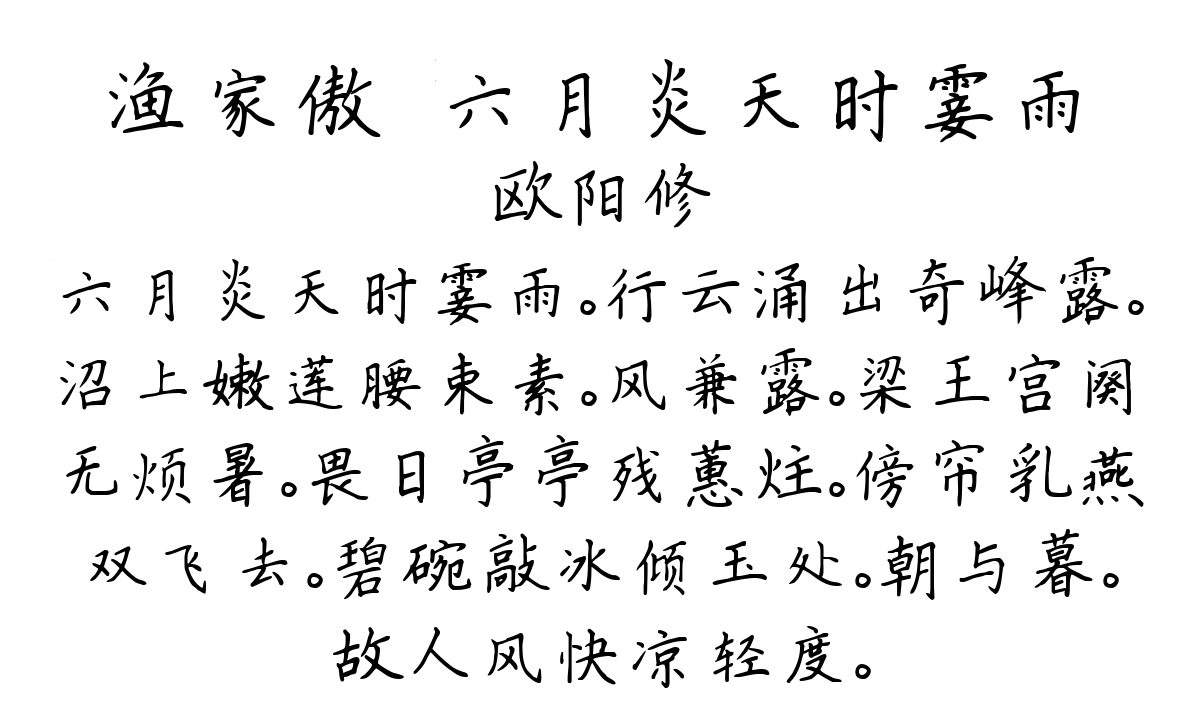 渔家傲 六月炎天时霎雨
欧阳修
六月炎天时霎雨。行云涌出奇峰露。
沼上嫩莲腰束素。风兼露。梁王宫阕
无烦暑。畏日亭亭残蕙炷。傍帘乳燕
双飞去。碧碗敲冰倾玉处。朝与暮。
故人风快凉轻度。